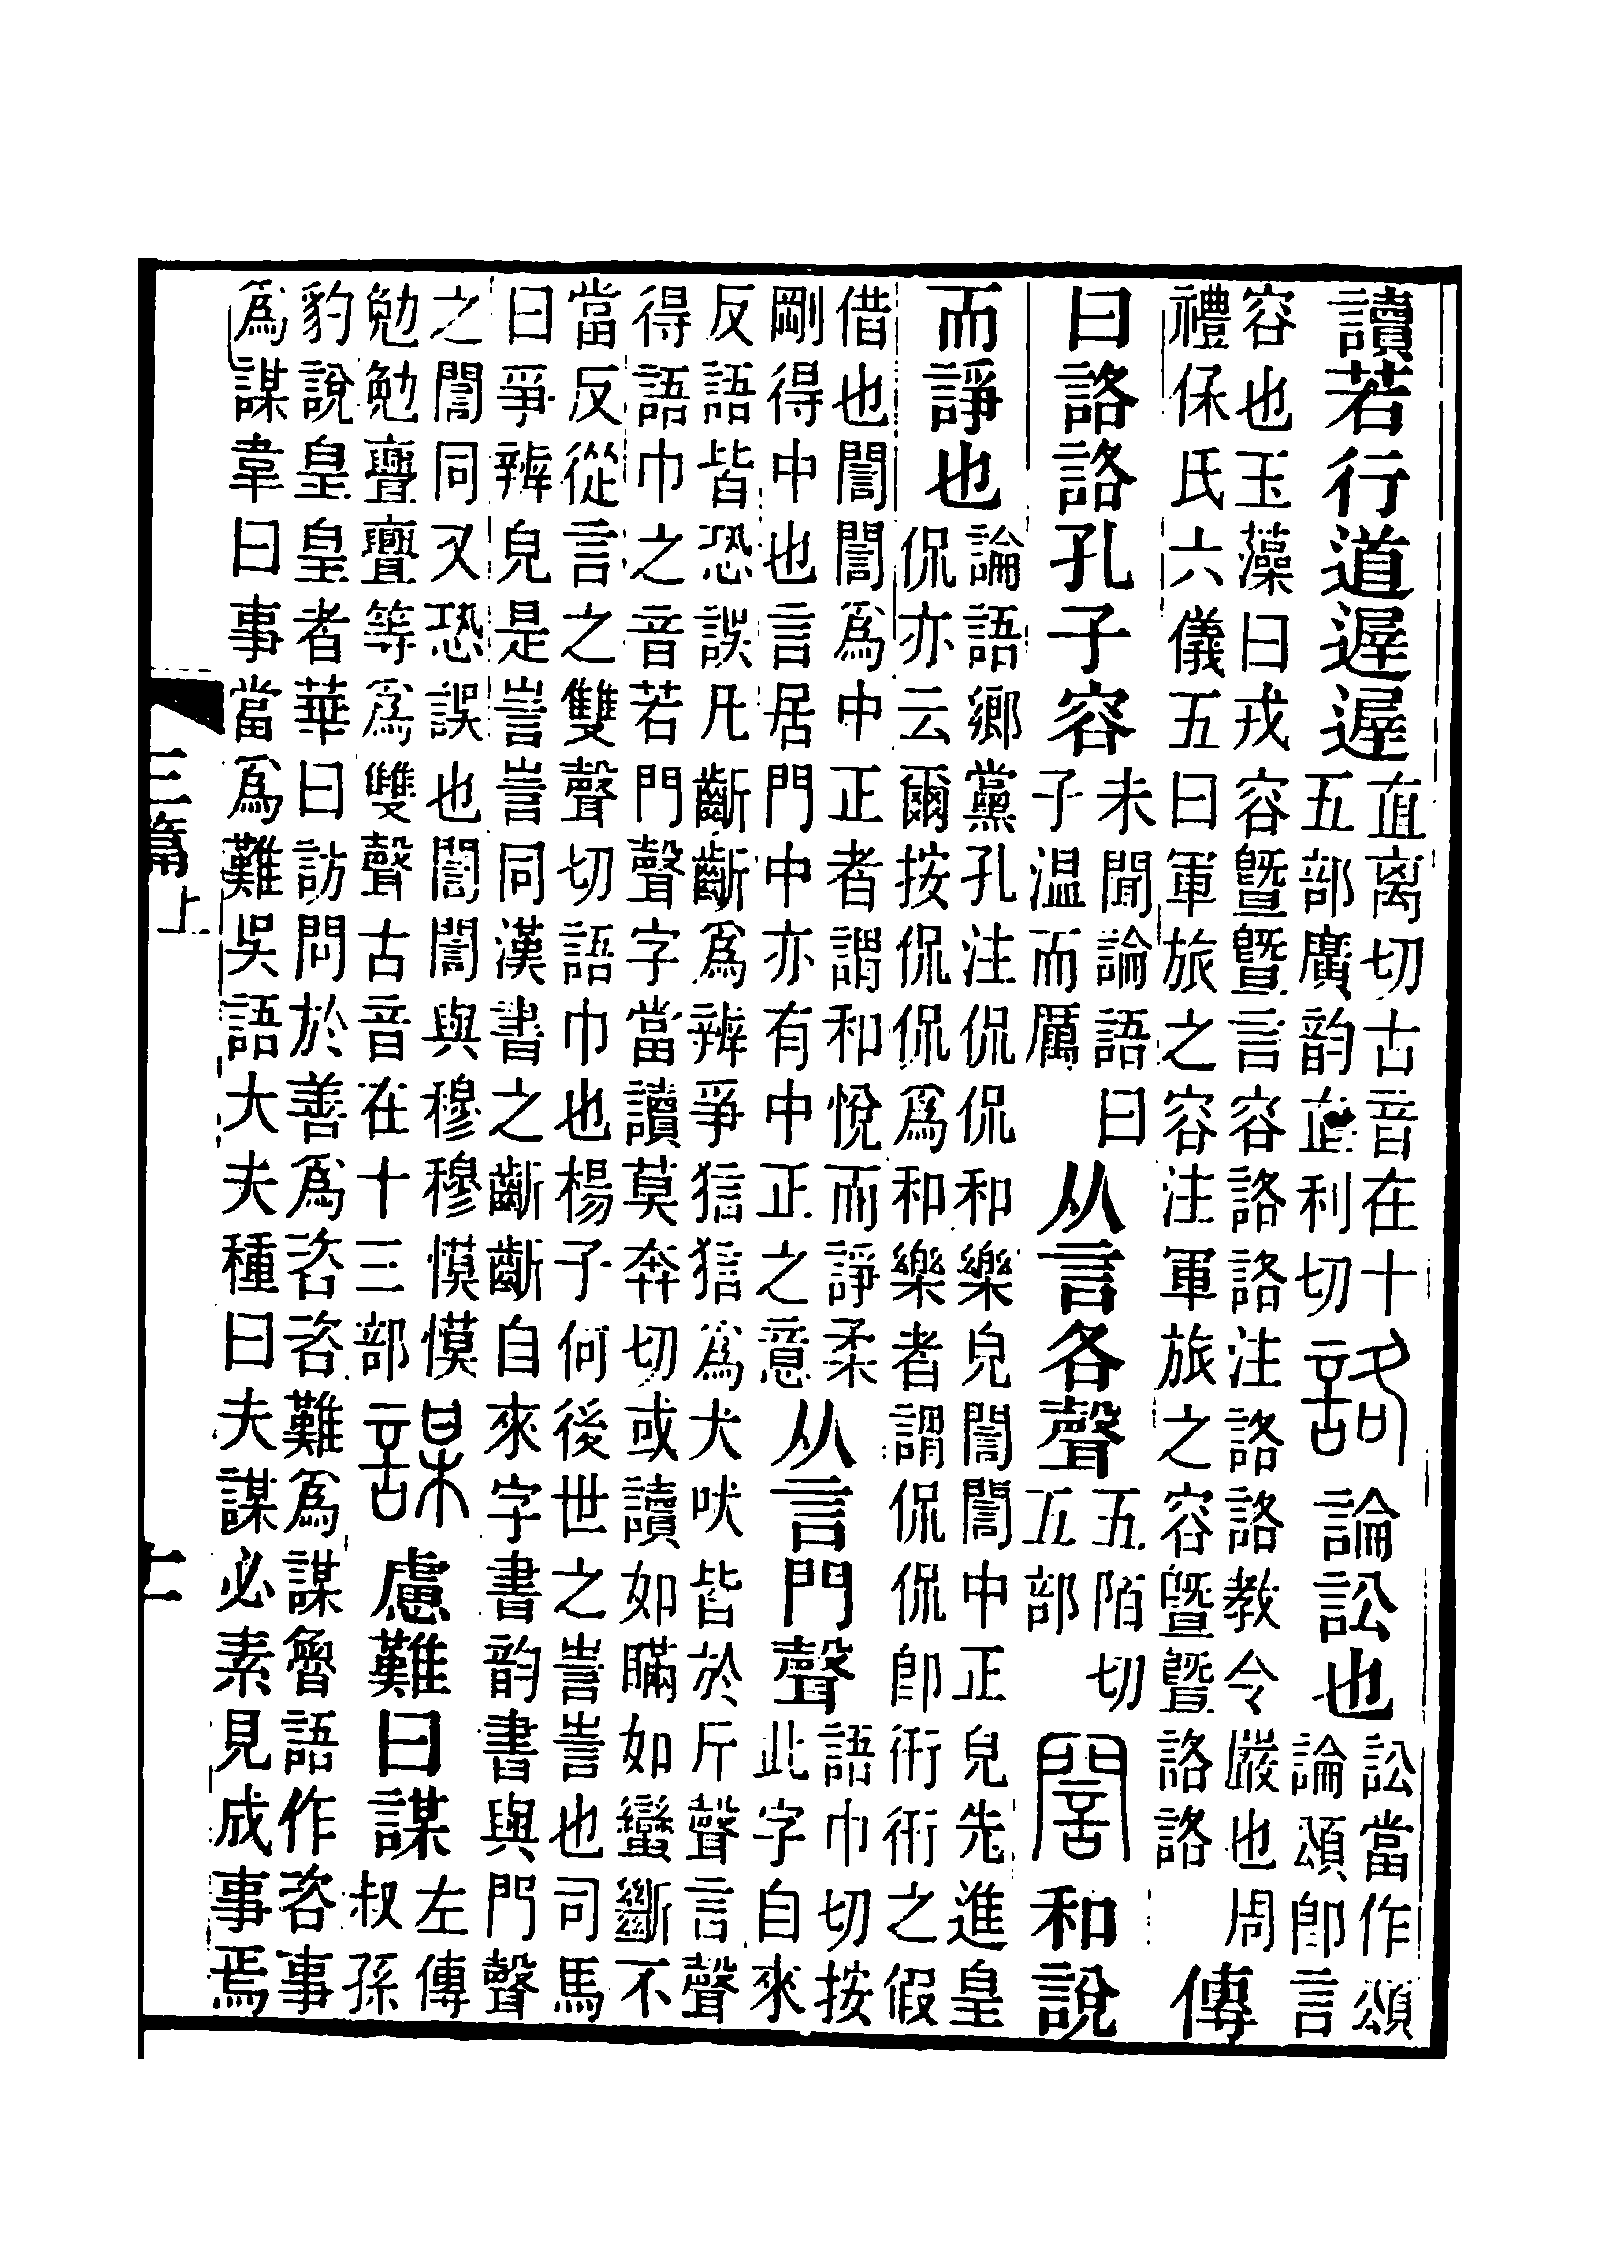 讀若行道遟遟
直离切古音在十
五部廣韵直利切
詻
論訟也
訟當作頌
論頌卽言
容也玉藻曰戎容曁曁言容詻詻注詻詻教令嚴也周
禮保氏六儀五曰軍旅之容注軍旅之容曁曁詻詻
傳
曰詻詻孔子容
未聞論語曰
子温而厲
从言各聲
五陌切
五部
誾
和說
而諍也
論語鄉黨孔注侃侃和樂皃誾誾中正皃先進皇
侃亦云爾按侃侃爲和樂者謂侃侃卽衎衎之假
借也誾誾爲中正者謂和悅而諍柔
剛得中也言居門中亦有中正之意
从言門聲
語巾切按
此字自來
反語皆恐誤凡齗齗爲辨爭狺狺爲犬吠皆於斤聲言聲
得語巾之音若門聲字當讀莫奔切或讀如瞞如蠻斷不
當反從言之雙聲切語巾也楊子何後世之訔訔也司馬
曰爭辨皃是訔訔同漢書之齗齗自來字書韵書與門聲
之誾同又恐誤也誾誾與穆穆慔慔
勉勉亹亹等爲雙聲古音在十三部
謀
慮難曰謀
左傳
叔孫
豹說皇皇者華曰訪問於善爲咨咨難爲謀魯語作咨事
爲謀韋曰事當爲難吳語大夫種曰夫謀必素見成事焉
三篇上